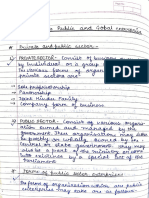 Private, Public and Global enterprises
* Private and public sector:-
1) PRIVATE SECTOR:- Consist of business owned
by individual or a group of
The various forms of organisation in
private sectors are:-
→ Sole proprietorship
→ Partnership
→ Joint Hindu Family
→ Company form of business
2) PUBLIC SECTOR:- Consist of various organisation
owned and managed by the
government. These organisation may
be partly or wholly owned by
central or state government. They may
also be a part of the ministry or come
into existence by a special act of the
Parliament.
* Forms of Public sector enterprises:-
The forms of organisation which are public
enterprises may take are as follow:-